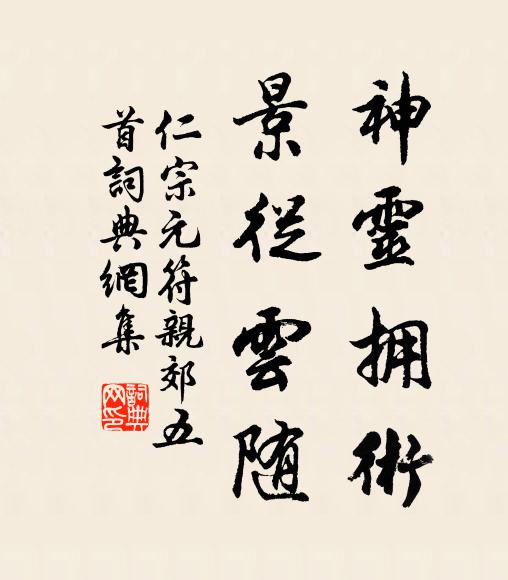 神靈拥術
景從雲随
仁宗元符親郊五
首詞典網集
詞典
网印